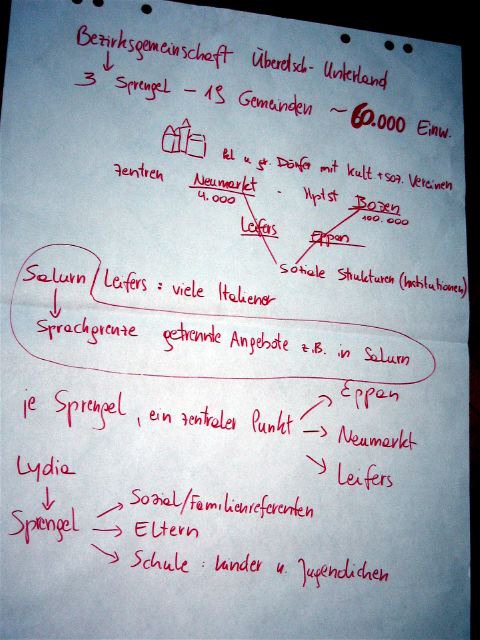 Bezirksgemeinschaft Überetsch-Unterland
3 Sprengel - 19 Gemeinden ~ 60.000 Einw.
kl u. gr. Dörfer mit kult + soz. Vereinen
Zentren Neumarkt - Hptst Bozen
4.000 100.000
Leifers Eppan
Soziale Strukturen (Institutionen)
Salurn / Leifers : viele Italiener
Sprachgrenze getrennte Angebote z.B. in Salurn
je Sprengel, ein zentraler Punkt
Eppan
Neumarkt
Leifers
Lydia
Sprengel
Sozial/Familienreferenten
Eltern
Schule : Kinder u. Jugendlichen